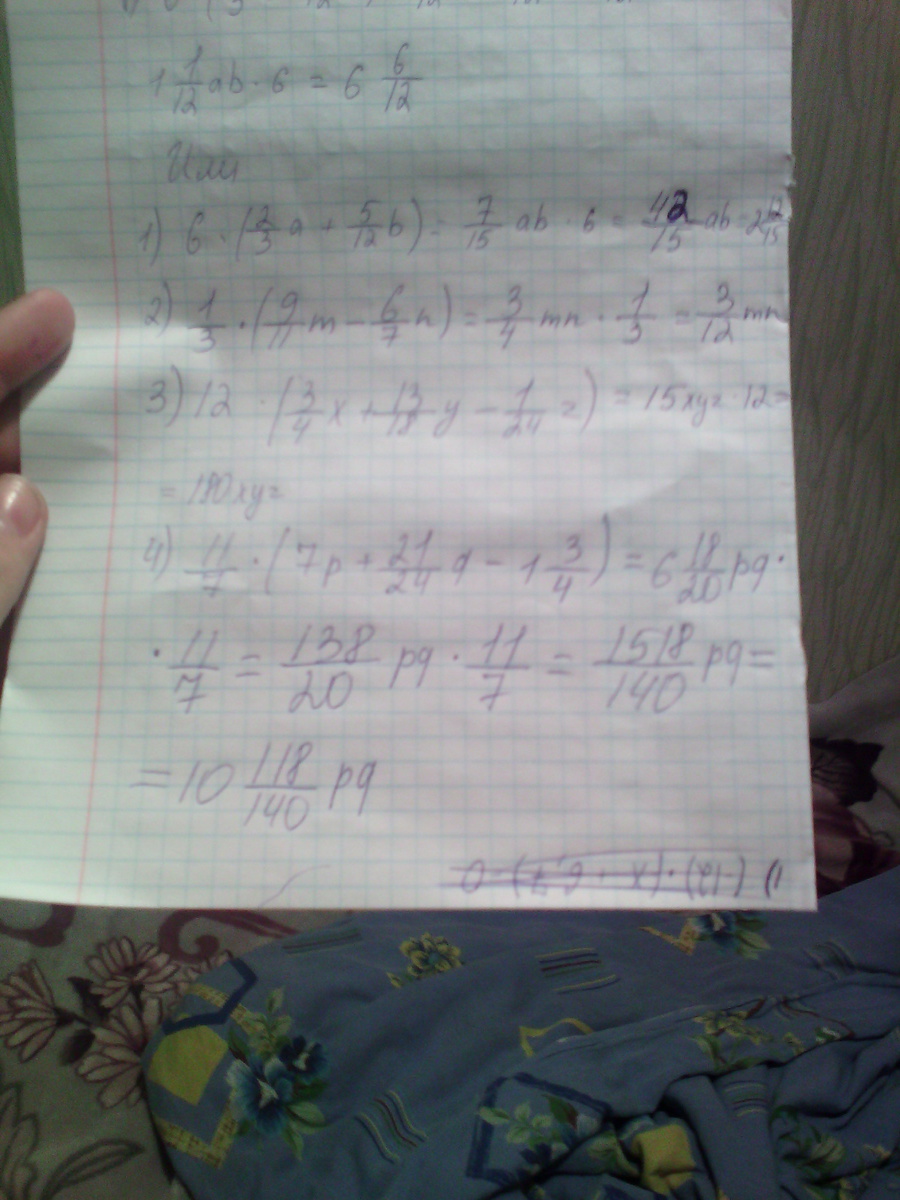 1 1/12 ab · 6 = 6 6/12
Или
1) 6 · (2/3 a + 5/12 b) = 7/15 ab · 6 = 42/15 ab = 2 12/15
2) 1/3 · (9/11 m − 6/7 n) = 3/4 mn · 1/3 = 3/12 mn
3) 12 · (3/4 x + 13/18 y − 1/24 z) = 15xyz · 12 =
= 180xyz
4) 11/7 · (7p + 21/24 q − 1 3/4) = 6 18/20 pq ·
· 11/7 = 138/20 pq · 11/7 = 1518/140 pq =
= 10 118/140 pq